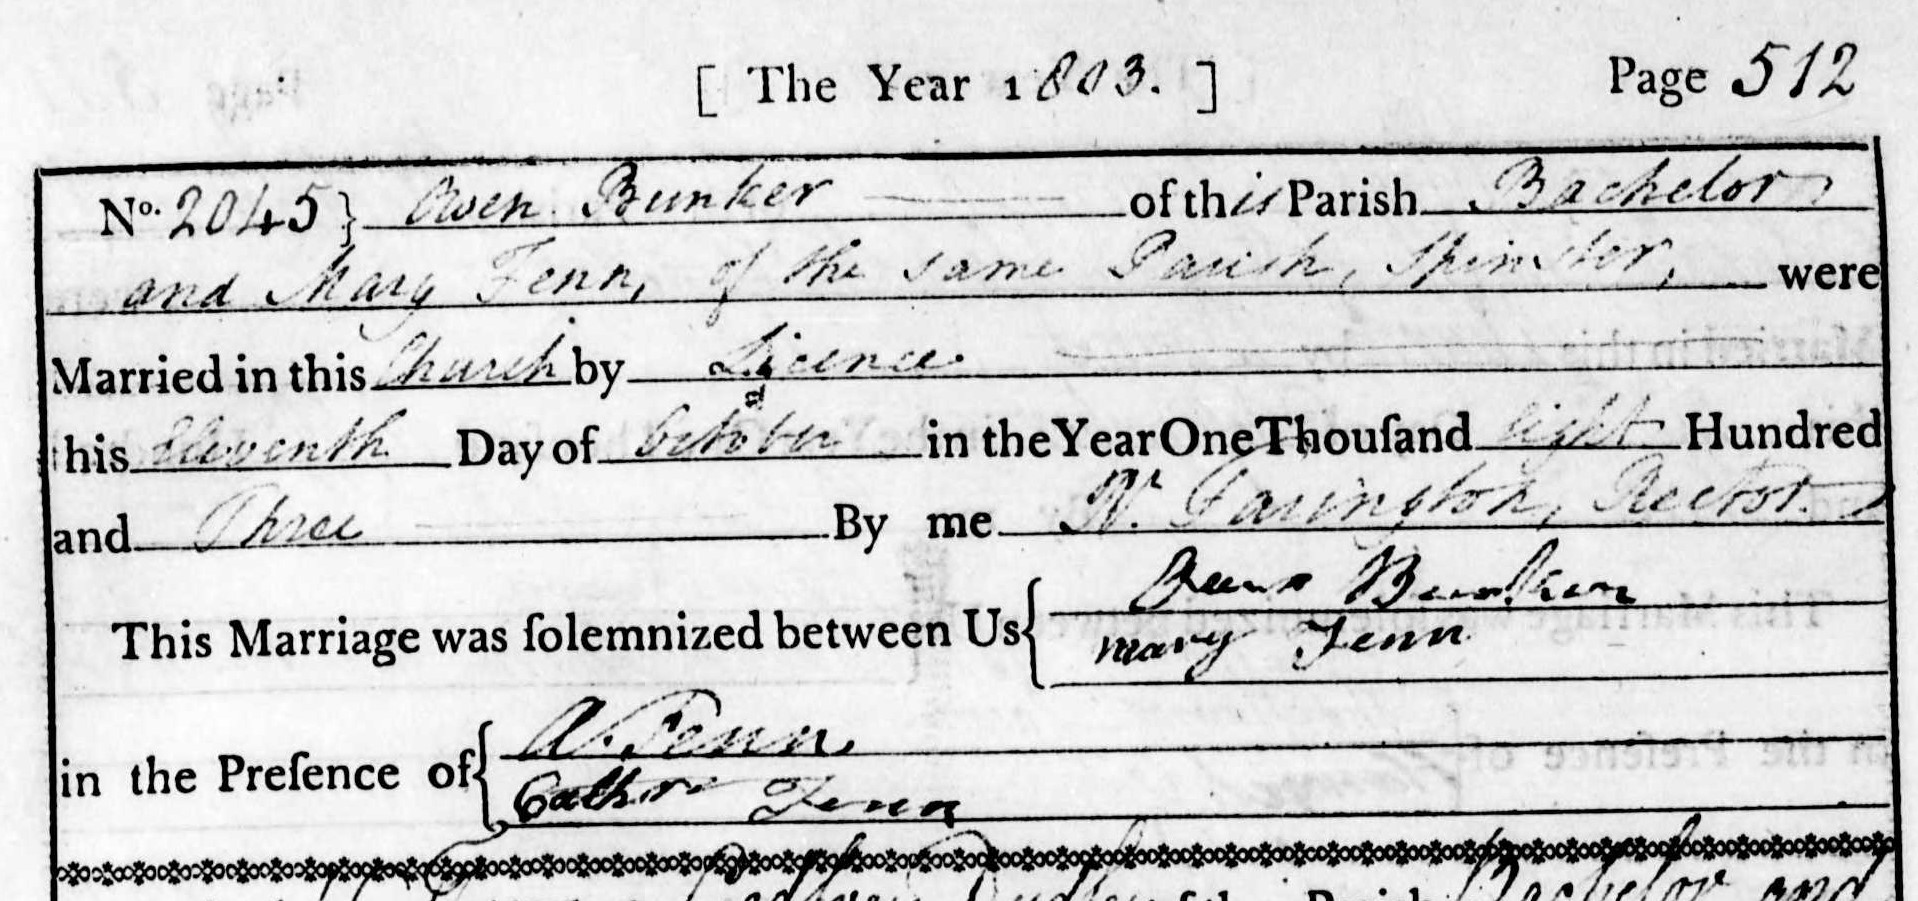 [ The Year 1803. ] Page 512
No. 2045} Owen Bunker of this Parish Bachelor
and Mary Fenn, of the same Parish, Spinster, were
Married in this Church by Licence
this Eleventh Day of October in the Year One Thouſand Eight Hundred
and Three By me Farington, Rector.
This Marriage was ſolemnized between Us{ Bunker
Mary Fenn
in the Preſence of{ A. Fenn.
Fenn
Parish Bachelor and